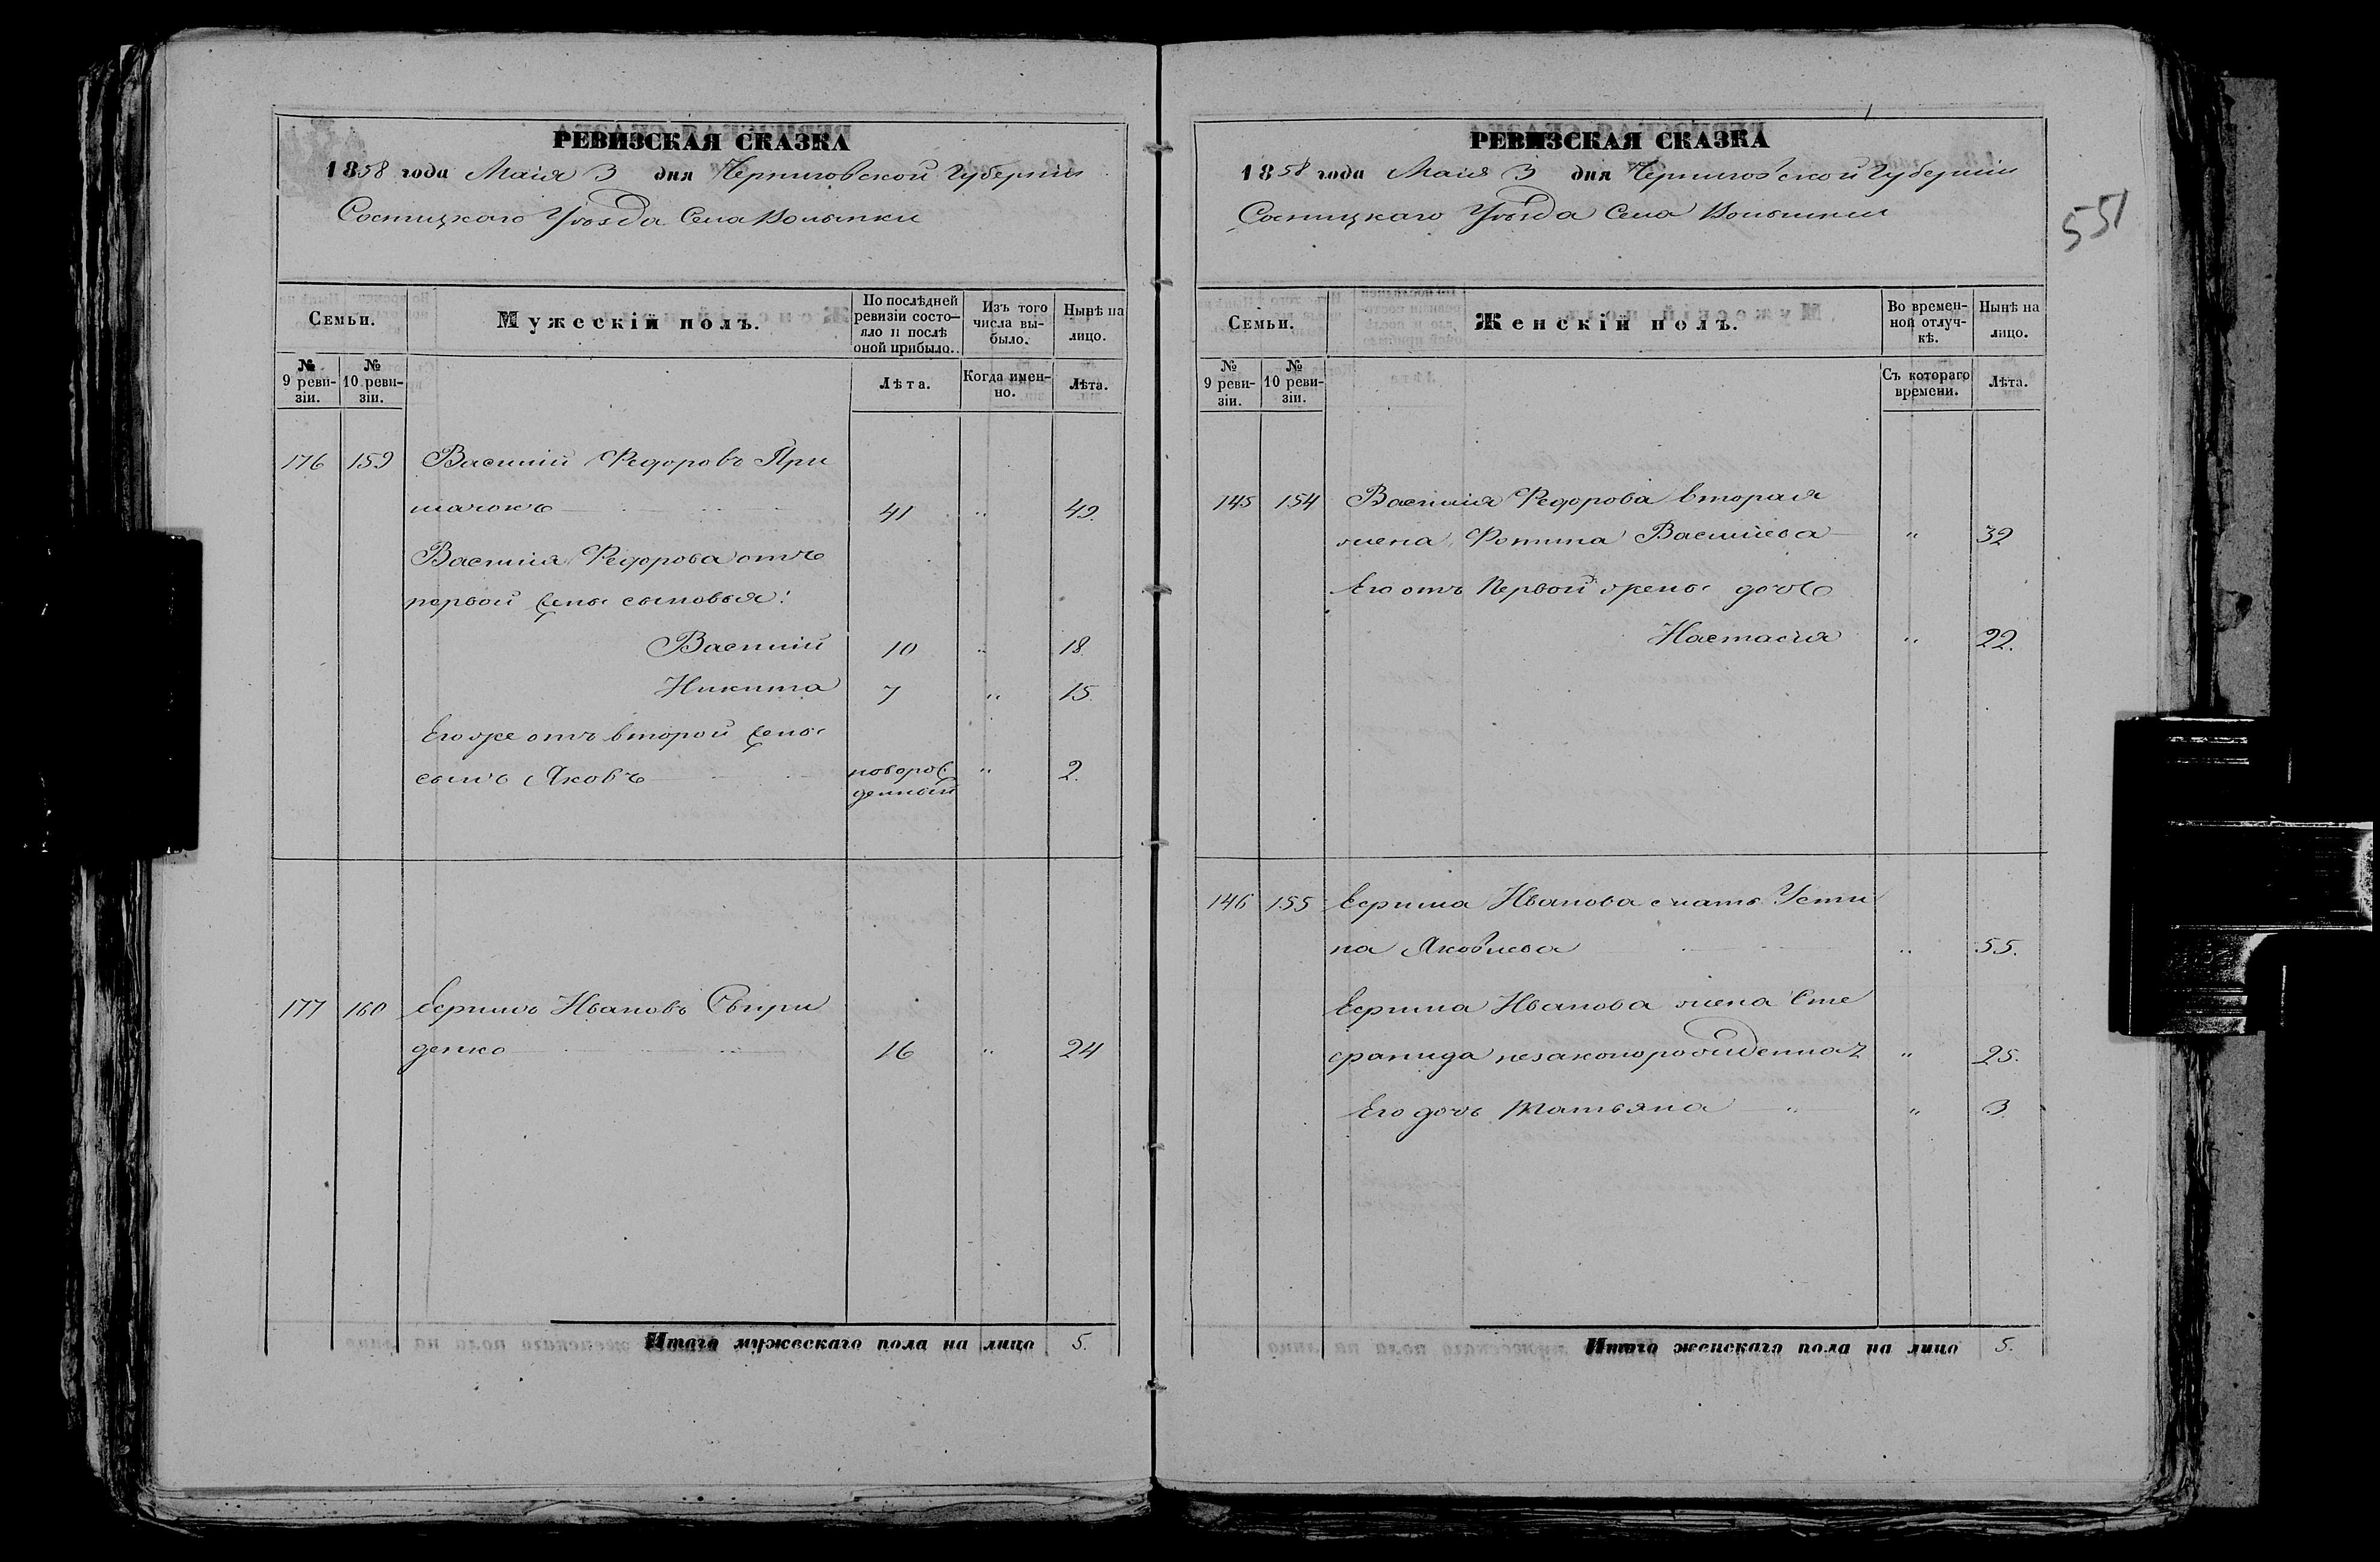 РЕВИЗСКАЯ СКАЗКА
1858 года Маія 3 дня Черниговской Губерніи
Сосницкаго Уѣзда Села Волынки
Семьи.
Мужескій полъ.
По послѣдней ревизіи состояло и послѣ оной прибыло.
Изъ того числа выбыло.
Нынѣ на лицо.
№ 9 ревизіи.
№ 10 ревизіи.
Лѣта.
Когда именно.
Лѣта.
176 159 Василій Федоровъ При
41 " 49.
Василія Федорова отъ
первой жены сыновья:
Василій 10 " 18
Никита 7 " 15
Его же отъ второй жены
сынъ Яковъ новорож денный " 2.
177 160 Ефримъ Ивановъ Свири
денко 16 " 24
Итого мужескаго пола на лицо 5.
РЕВИЗСКАЯ СКАЗКА
1858 года Маія 3 дня Черниговской Губерніи
Сосницкаго Уѣзда Села Волынки
551
Семьи.
Женскій полъ.
Во временной отлучкѣ.
Нынѣ на лицо.
№ 9 ревизіи.
№ 10 ревизіи.
Съ котораго времени.
Лѣта.
145 154 Василія Федорова вторая
жена Фотина Васильева " 32
Его отъ первой жены дочь
Настасія " 22.
146 155 Ефрима Иванова мать Усти
на Яковлева " 55.
Ефрима Иванова жена Сте
фанида незаконорожденная " 25.
Его дочь Татьяна " " 3
Итого женскаго пола на лицо 5.